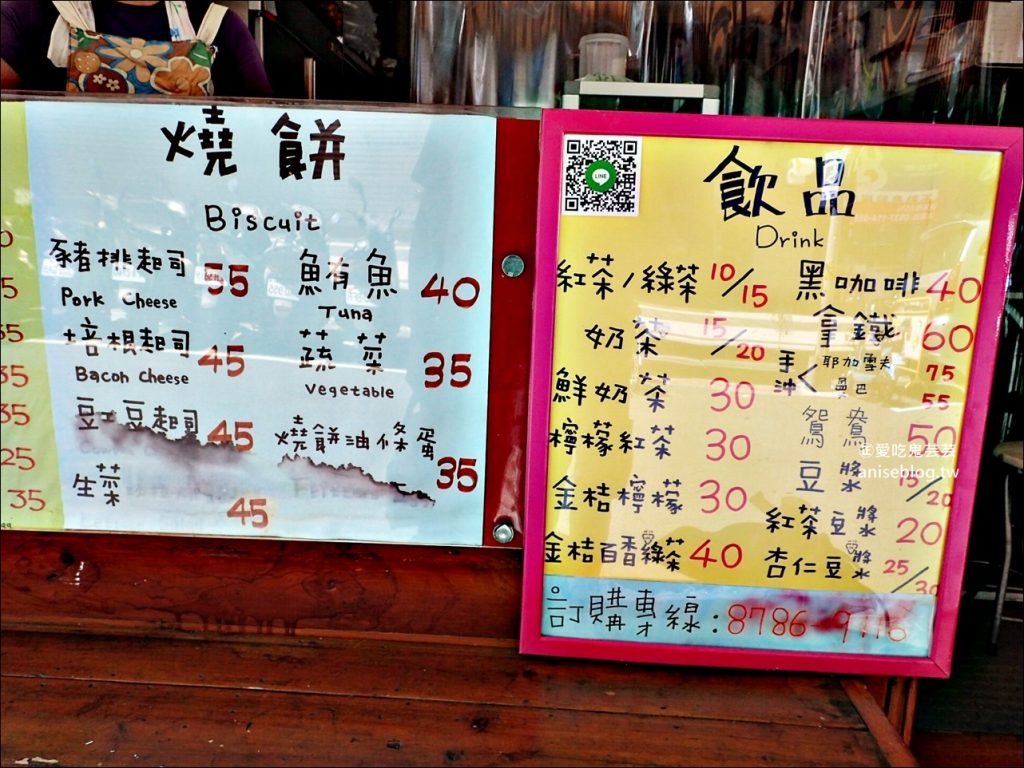 燒餅
Biscuit
豬排起司 55
Pork Cheese
培根起司 45
Bacon Cheese
豆豆起司 45
生菜 45
鮪魚 40
Tuna
蔬菜 35
Vegetable
燒餅油條蛋 35
5
35
35
35
25
35
LINE
飲品
Drink
紅茶/綠茶 10/15
奶茶 15/20
鮮奶茶 30
檸檬紅茶 30
金桔檸檬 30
金桔百香綠茶 40
黑咖啡 40
拿鐵 60
手沖 耶加雪夫 75
曼巴 55
鴛鴦 50
豆漿 15/20
紅茶豆漿 20
杏仁豆漿 25/30
訂購專線:8786-9716
愛吃鬼芸芸
aniseblog.tw